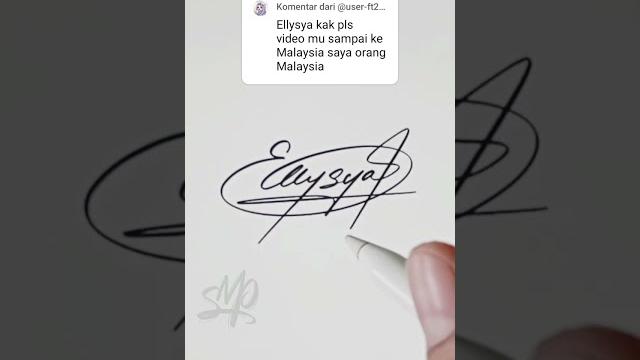 Komentar dari @user-ft2...
Ellysya kak pls
video mu sampai ke
Malaysia saya orang
Malaysia
Ellysya